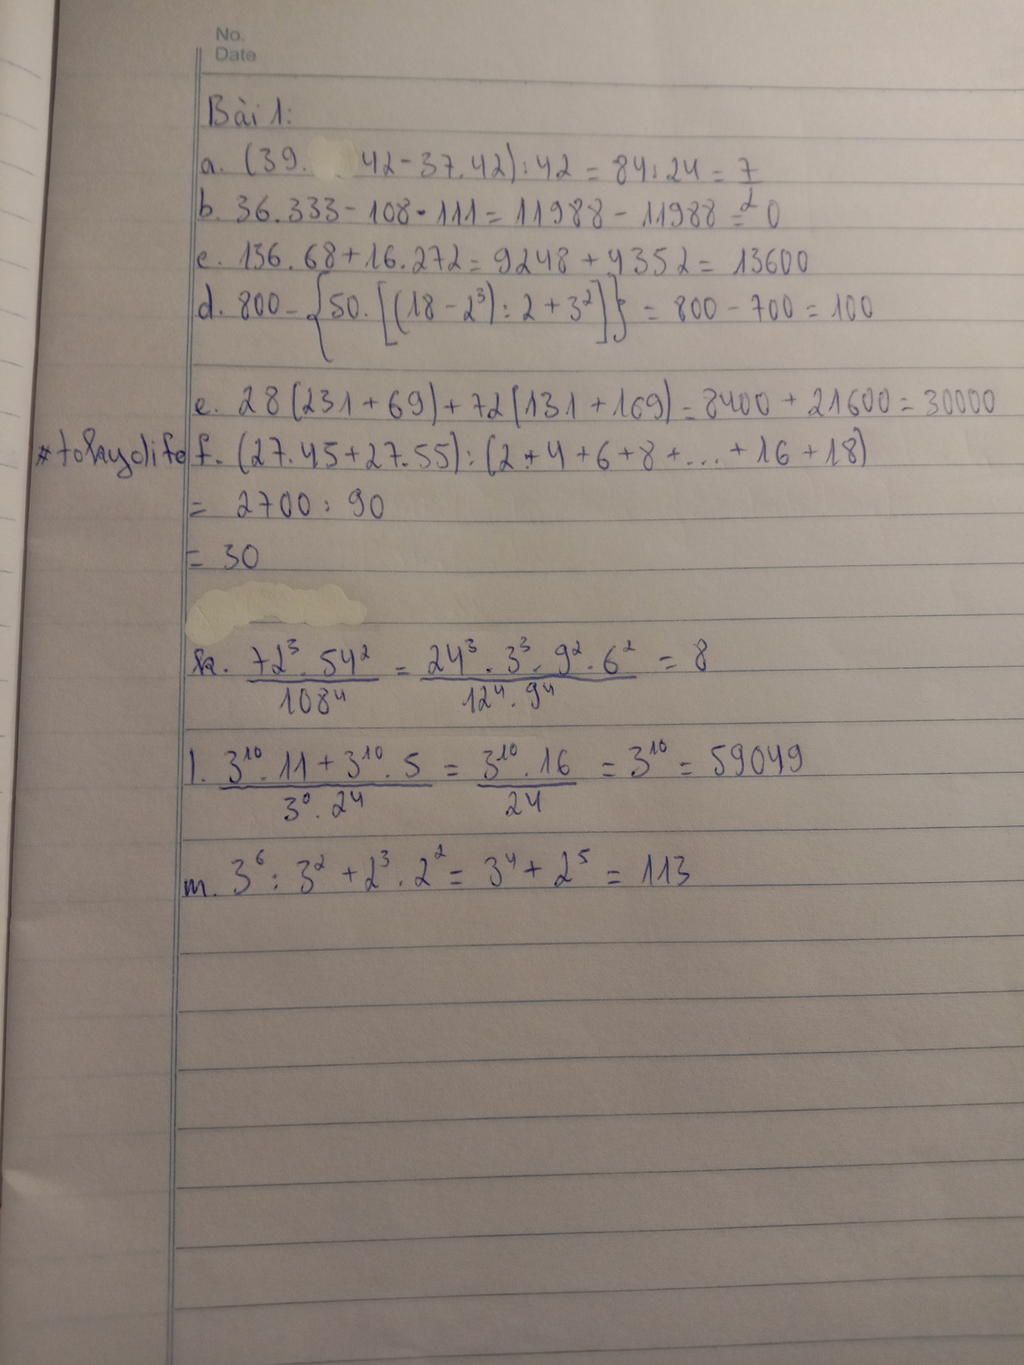 No.
Date
Bài 1:
a. (39. 42-37.42):42 = 84:24 = 7/2
b. 36.333-108.111 = 11988-11988 = 0
c. 136.68+16.272 = 9248+4352 = 13600
d. 800-{50.[(18-2³):2+3²]} = 800-700 = 100
e. 28(231+69)+72(131+169) = 8400+21600 = 30000
#tokyolife f. (27.45+27.55):(2+4+6+8+...+16+18)
= 2700:90
= 30
k. 72³.54²/108⁴ = 24³.3³.9².6²/12⁴.9⁴ = 8
l. 3¹⁰.11+3¹⁰.5/3⁰.2⁴ = 3¹⁰.16/2⁴ = 3¹⁰ = 59049
m. 3⁶:3²+2³.2² = 3⁴+2⁵ = 113